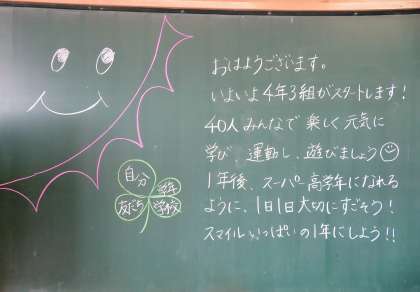 おはようございます。
いよいよ4年3組がスタートします!
40人みんなで楽しく元気に
学び、運動し、遊びましょう
1年後、スーパー高学年になれる
ように、1日1日大切にすごそう!
スマイルいっぱいの1年にしよう!!
自分
学年
友だち
学校